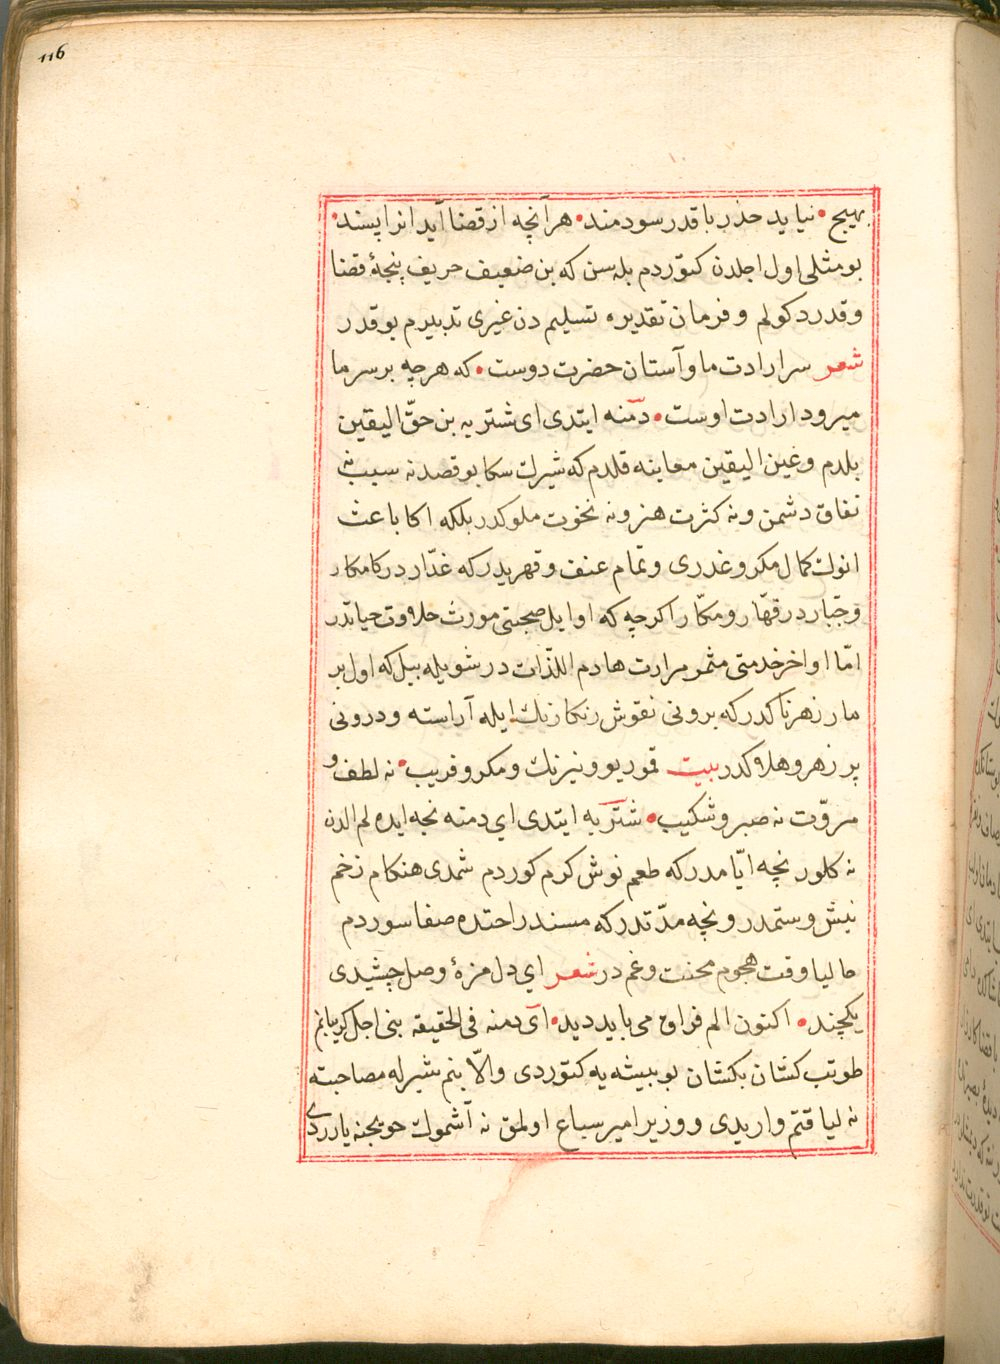 116
بهیچ • نیاید حذر با قدر سودمند • هر آنچه از قضا آید انرا پسند •
بو مثلی اول اجلدن کتوردم بلسن که بن ضعیف حریف پنجهٔ قضا
و قدر دکولم و فرمان تقدیره تسلیم دن غیری تدبیرم یوقدر
شعر سر ارادت ما و آستان حضرت دوست • که هر چه بر سر ما
میرود ارادت اوست • دمنه ایتدی ای شتربه بن حقّ الیقین
بلدم و عین الیقین معاینه قلدم که شیرك سکا بو قصدنه سبب نه
نفاق دشمن و نه کثرت هنر و نه نخوت ملوکدر بلکه اکا باعث
انوك کمال مکر و غدری و تمام عنف و قهریدر که غدّار در کامکار
و جبّار در قهّار و مکّار اکرچه که اوایل صحبتی مورث حلاوت حیاتدر
امّا اواخر خدمتی مثمر مرارت هادم اللذّات در شویله بیل که اول بر
مار زهرناکدر که برونی نقوش رنکارنك ایله آراسته و درونی
پر زهر و هلاکدر بیت قمو ریو و نیرنك و مکر و فریب • نه لطف و
مروّت نه صبر و شکیب • شتربه ایتدی ای دمنه نجه ایده لم الدن
نه کلور نجه ایّامدر که طعم نوش کرم کوردم شمدی هنکام زخم
نیش و ستمدر و نجه مدّتدر که مسند راحتده صفا سوردم
حالیا وقت هجوم محنت و غم در شعر ای دل مزهٔ وصل چشیدی
یکچند • اکنون الم فراق می باید دید • ای دمنه فی الحقیقه بنی اجل کریبانم
طوتب کشان بکشان بو بیشه یه کتوردی و الّا بنم شیر له مصاحبته
نه لیاقتم واریدی و وزیر امیر سباع اولمق نه آشموك حویجنه یارردی